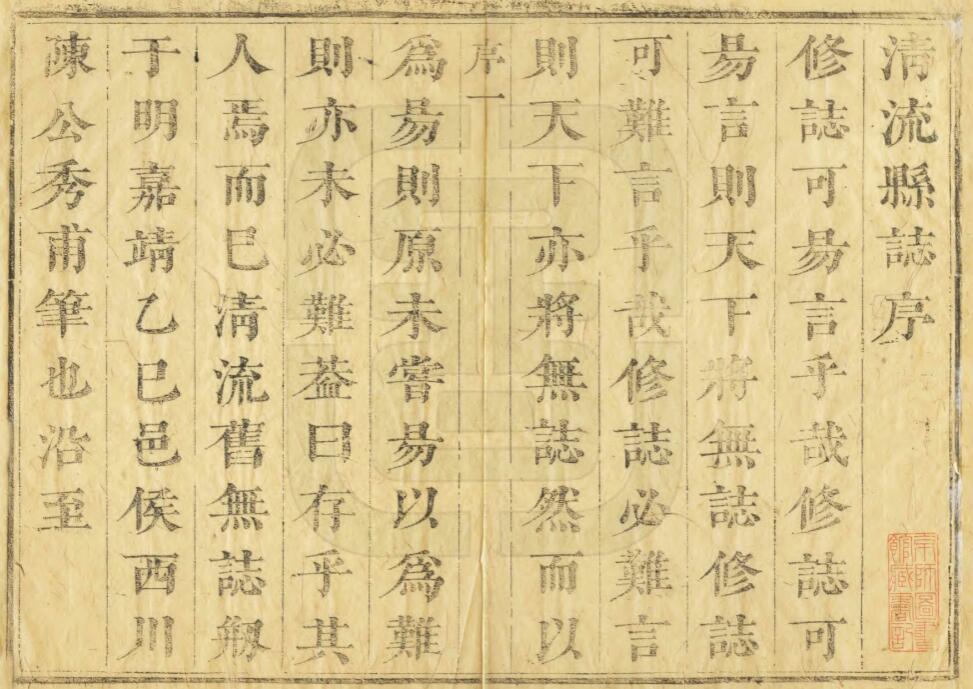 淸流縣誌序
修誌可易言乎哉修誌可
易言則天下將無誌修誌
可難言乎哉修誌必難言
則天下亦將無誌然而以
序一
爲易則原未嘗易以爲難
則亦未必難葢曰存乎其
人焉而已淸流舊無誌剏
于明嘉靖乙巳邑侯西川
陳公秀甫筆也沿至